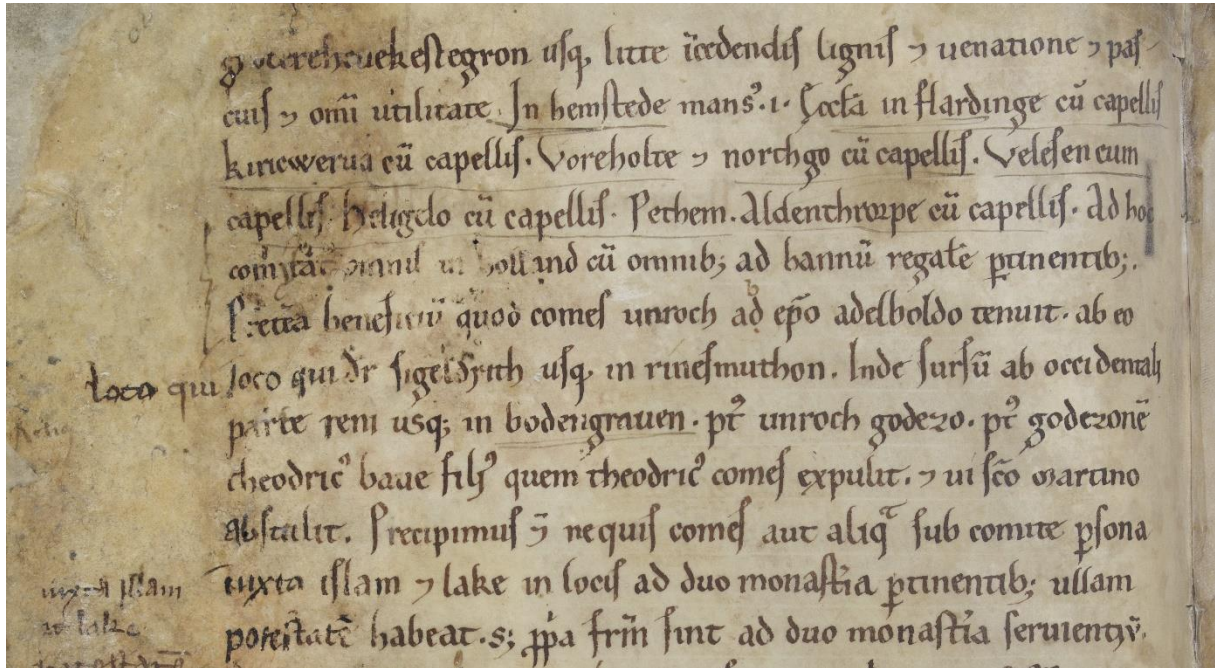 usq; litte īcedendis lignis ⁊ uenatione ⁊ pas-
cuis ⁊ om̄i utilitate. In hemstede mans̉.i. Ęcclā in flardinge cū capellis
kiricwerua cū capellis. Voreholte ⁊ northgo cū capellis. Velesen cum
capellis. Heligelo cū capellis. Pethem. Aldenthrorpe cū capellis. Ad hoc
in holland cū omnib; ad bannū regale ꝑtinentib;.
beneficiū quod comes unroch ad ep̄o adelboldo tenuit. ab eo
loco qui loco qui dr̄ usq; in rinesmuthon. Inde sursū ab occidentali
parte reni usq; in bodengrauen. pt̉ unroch godezo. pt̉ godezonē
theodric̉ baue filỉ quem theodric̉ comes expulit. ⁊ ui sc̄o martino
abstulit. Precipimus ⁊̄ ne quis comes aut aliqͣ sub comite ꝑsona
iuxta islam iuxta islam ⁊ lake in locis ad duo monast̄ia ꝑtinentib; ullam
⁊ lake potestatē habeat. s; ꝓpa fr̄m sint ad duo monast̄ia seruientiū.